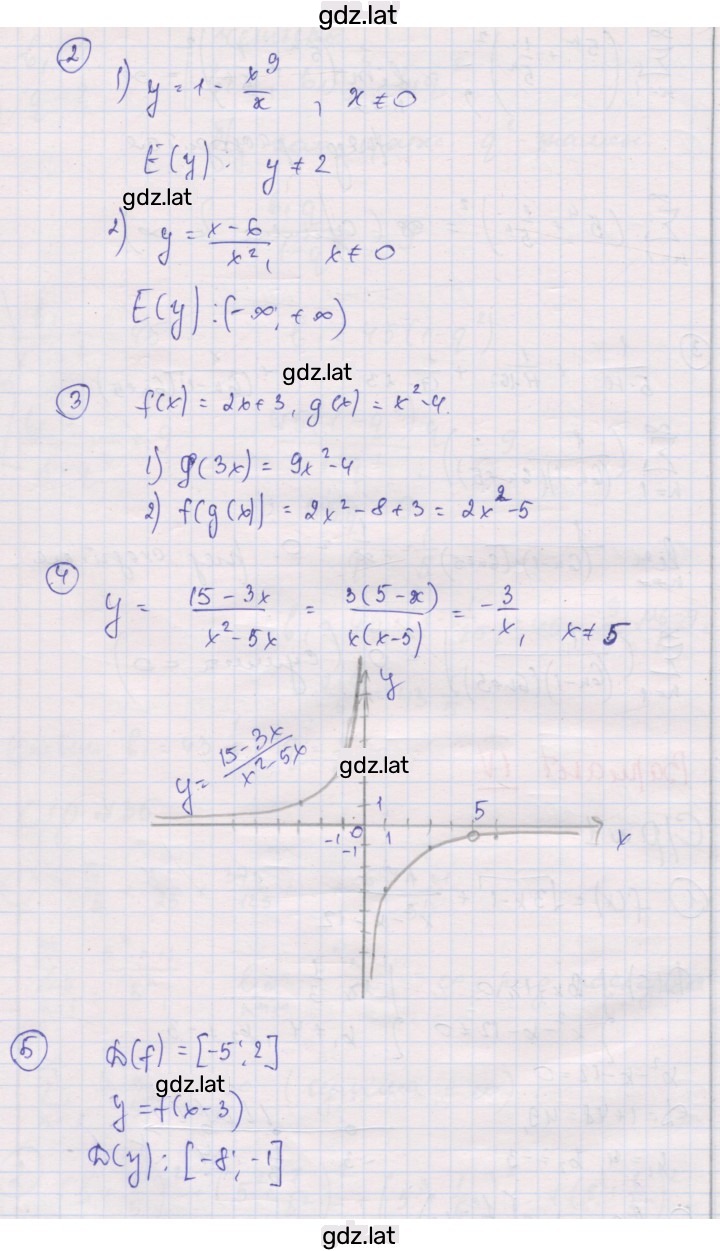 gdz.lat
2
1) y = 1 - x⁹/x , x ≠ 0
E(y): y ≠ 2
gdz.lat
2) y = (x-6)/x², x ≠ 0
E(y): (-∞; +∞)
gdz.lat
3 f(x) = 2x+3, g(x) = x²-4.
1) g(3x) = 9x²-4
2) f(g(x)) = 2x²-8+3 = 2x²-5
4
y = (15-3x)/(x²-5x) = 3(5-x)/(x(x-5)) = -3/x, x ≠ 5
y
y = (15-3x)/(x²-5x)
gdz.lat
1
5
0
-1
1
x
-1
5 D(f) = [-5; 2]
gdz.lat
y = f(x-3)
D(y): [-8; -1]
gdz.lat